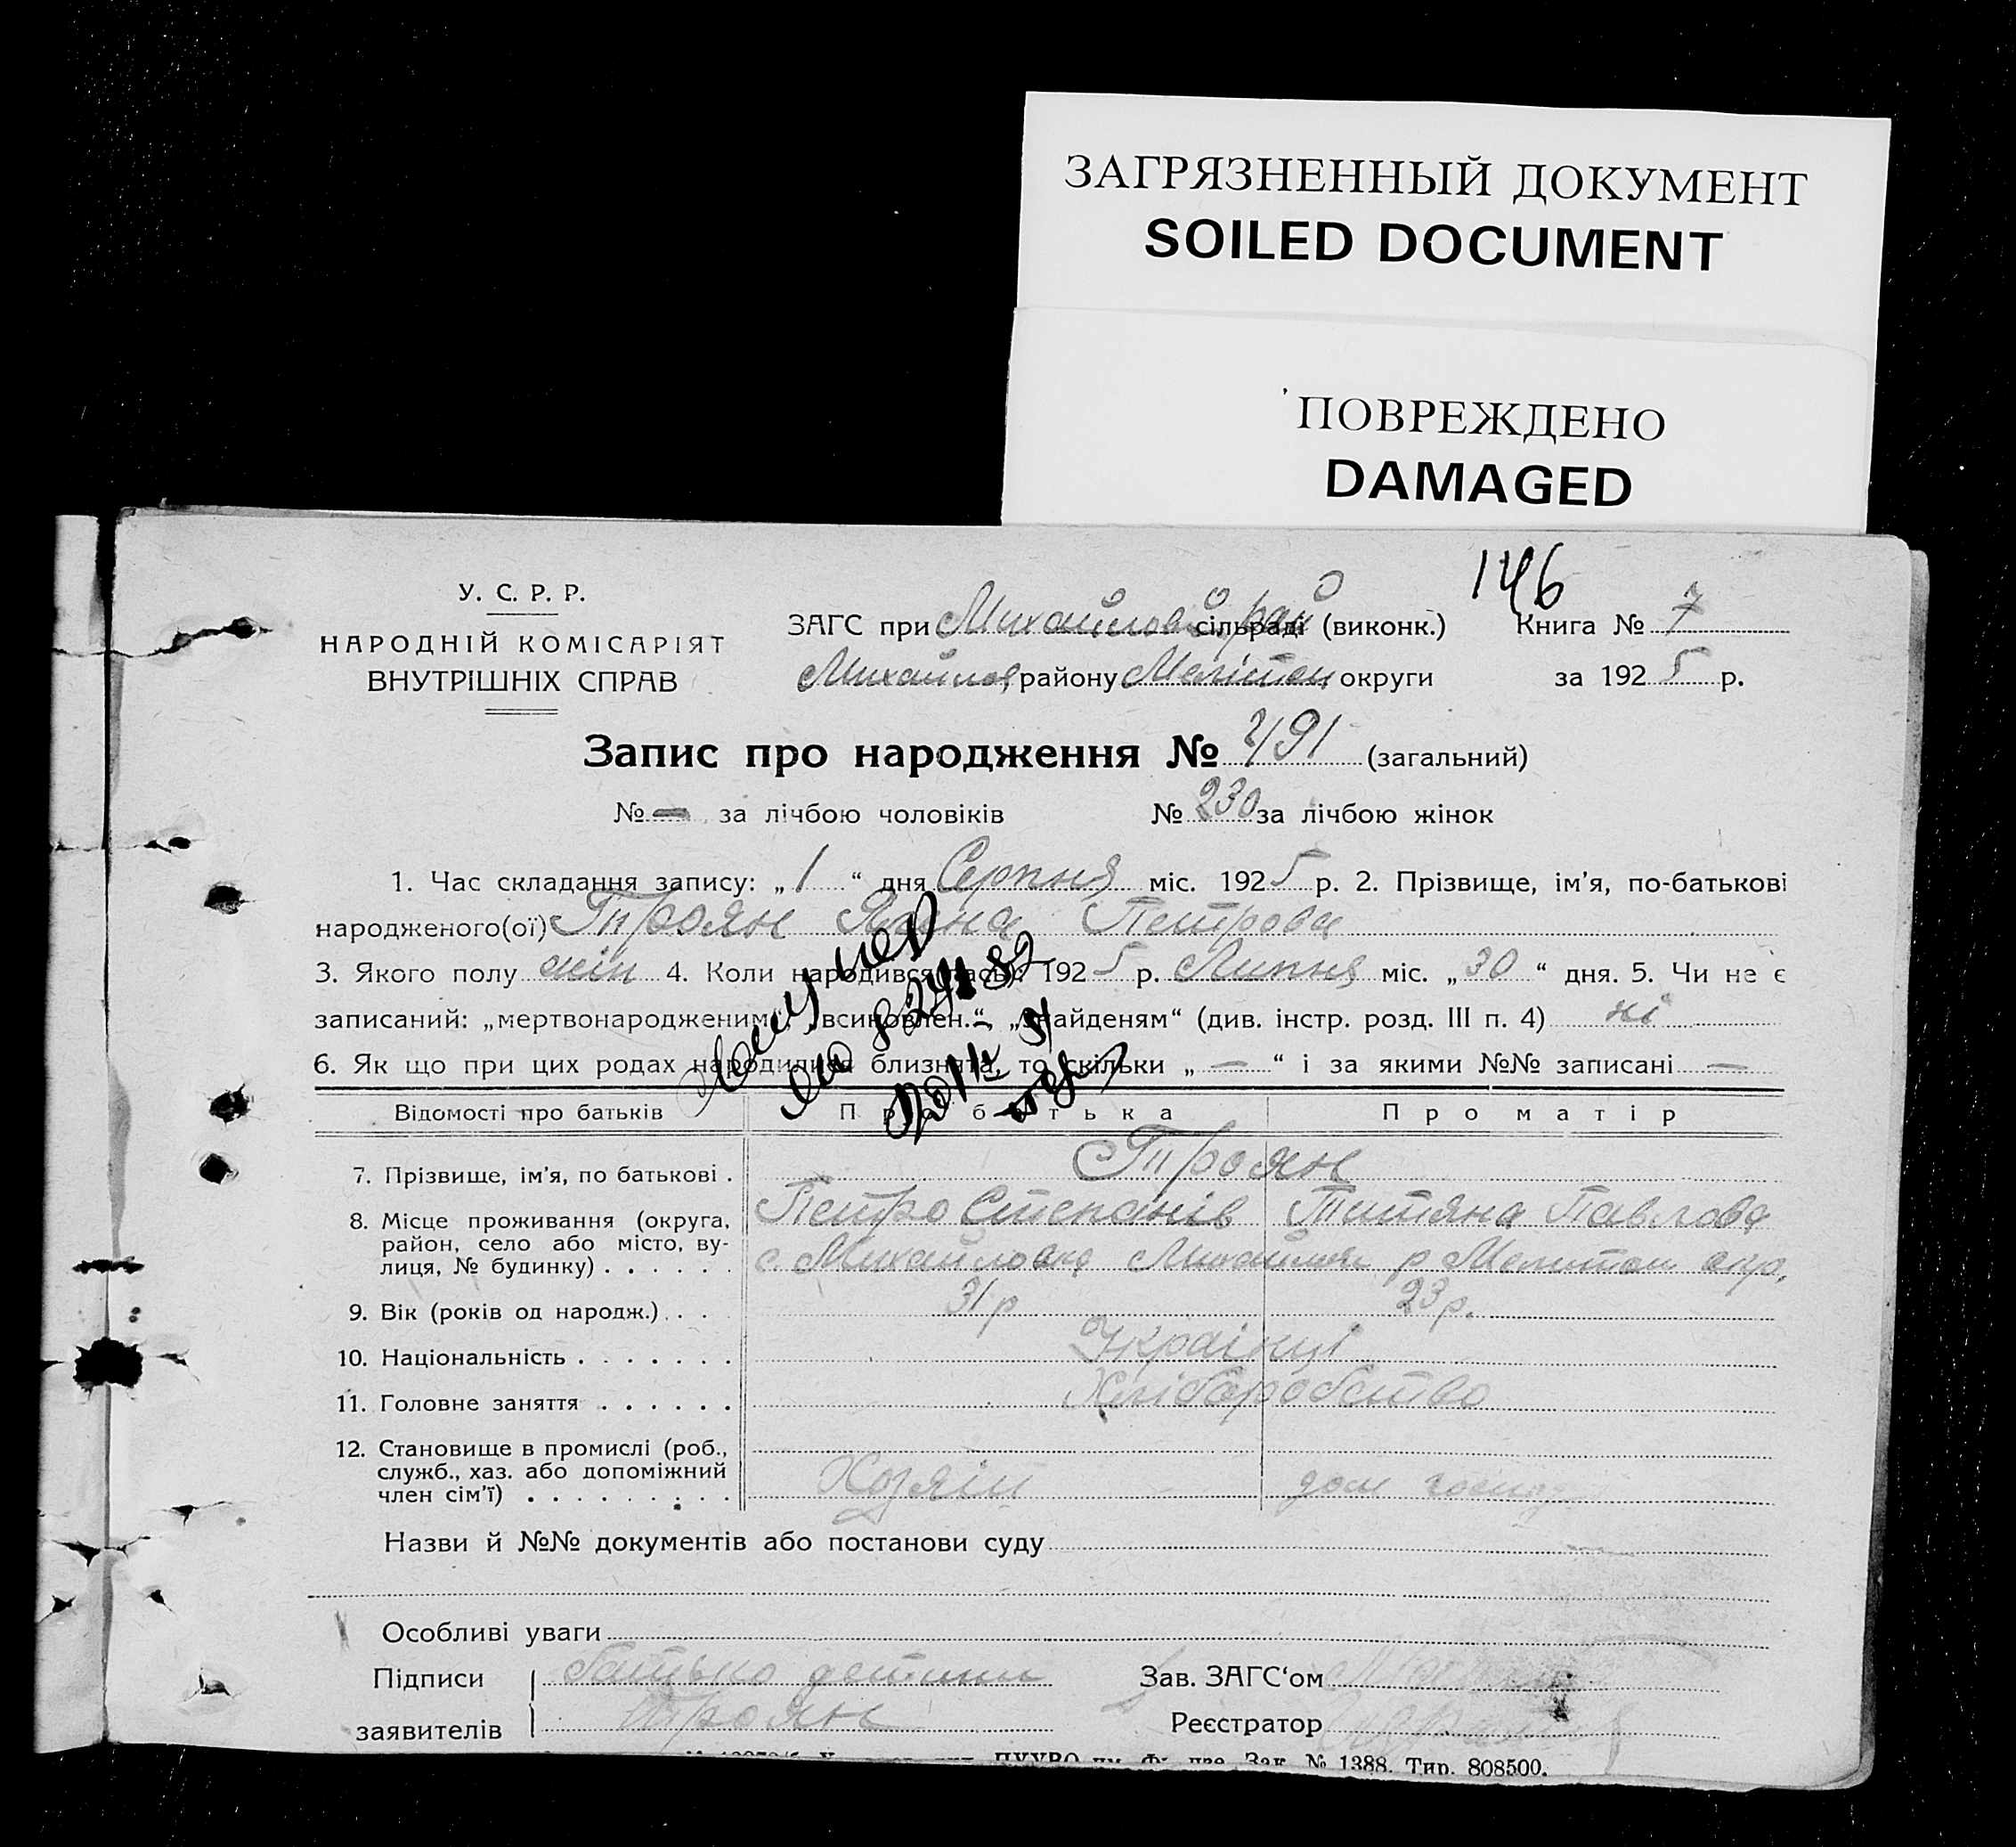 ЗАГРЯЗНЕННЫЙ ДОКУМЕНТ
SOILED DOCUMENT
ПОВРЕЖДЕНО
DAMAGED
146
У. С. Р. Р.
НАРОДНІЙ КОМІСАРІЯТ
ВНУТРІШНІХ СПРАВ
ЗАГС при Михайлов рай сільраді (виконк.) Книга № 7
Михайлов району Меліт округи за 1925 р.
Запис про народження № 491 (загальний)
№ — за лічбою чоловіків № 230 за лічбою жінок
1. Час складання запису: „1“ дня Серпня міс. 1925 р. 2. Прізвище, ім'я, по-батькові
народженого(ої) Троян Петрова
3. Якого полу жін 4. Коли народився(лась): 1925 р. Липня міс. „30“ дня. 5. Чи не є
записаний: „мертвонародженим“, „всиновлен.“, „знайденям“ (див. інстр. розд. III п. 4) ні
6. Як що при цих родах народилися близнята, то скільки „—“ і за якими №№ записані —
Відомості про батьків Про батька Про матір
7. Прізвище, ім'я, по батькові . Троян
Петро Степанів Титяна Павлова
8. Місце проживання (округа,
район, село або місто, ву-
лиця, № будинку) . . . . . . с. Михайловка р Мелитоп окр.
9. Вік (років од народж.) . . . 31 р 23 р.
10. Національність . . . . . . . Українці
11. Головне заняття . . . . . . Хліборобство
12. Становище в промислі (роб.,
служб., хаз. або допоміжний
член сім'ї) . . . . . . . . . Хозяїн дом господ
Назви й №№ документів або постанови суду
Особливі уваги
Підписи батько детини Зав. ЗАГС'ом
заявителів Троян Реєстратор
Зак. № 1388. Тир. 808500.